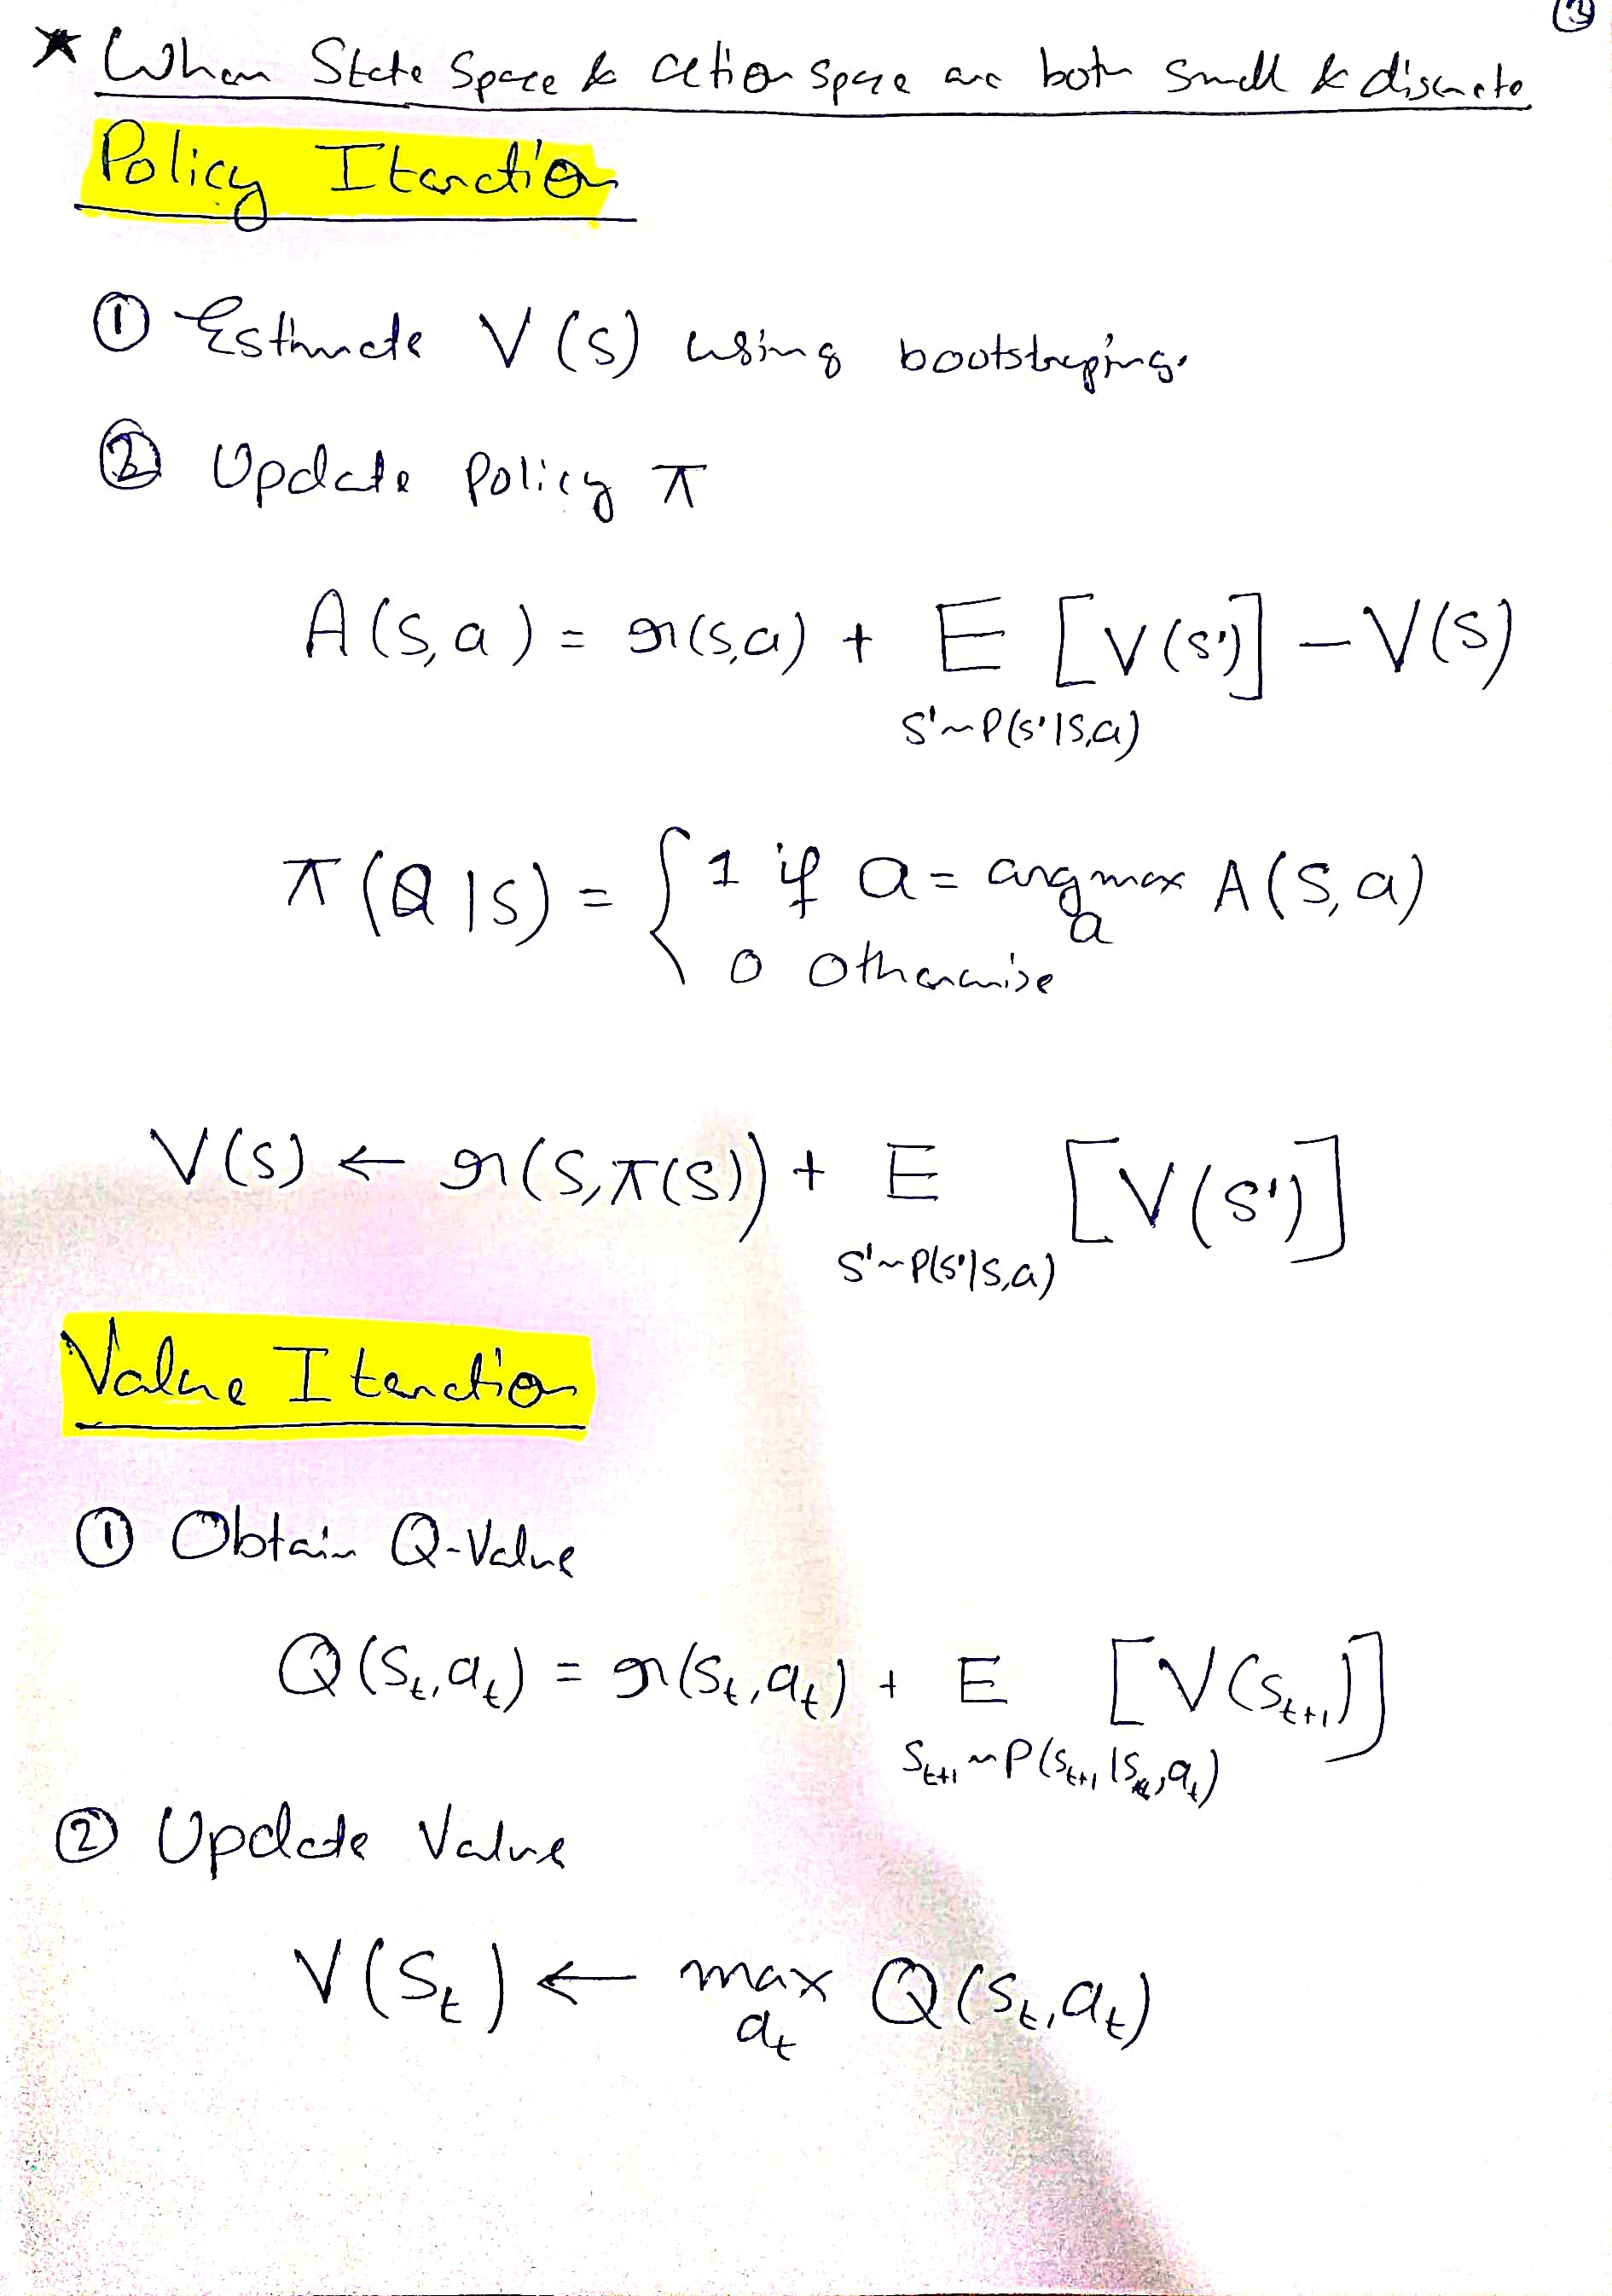 ③
* When State Space & action space are both small & discrete
Policy Iteration
① Estimate V(s) using bootstraping.
② Update Policy π
A(s,a) = r(s,a) + E [V(s')] - V(s)
s'~P(s'|s,a)
π(a|s) = { 1 if a = argmax A(s,a)
a
0 otherwise
V(s) ← r(s,π(s)) + E [V(s')]
s'~P(s'|s,a)
Value Iteration
① Obtain Q-Value
Q(s_t,a_t) = r(s_t,a_t) + E [V(s_{t+1})]
s_{t+1}~P(s_{t+1}|s_t,a_t)
② Update Value
V(s_t) ← max Q(s_t,a_t)
a_t